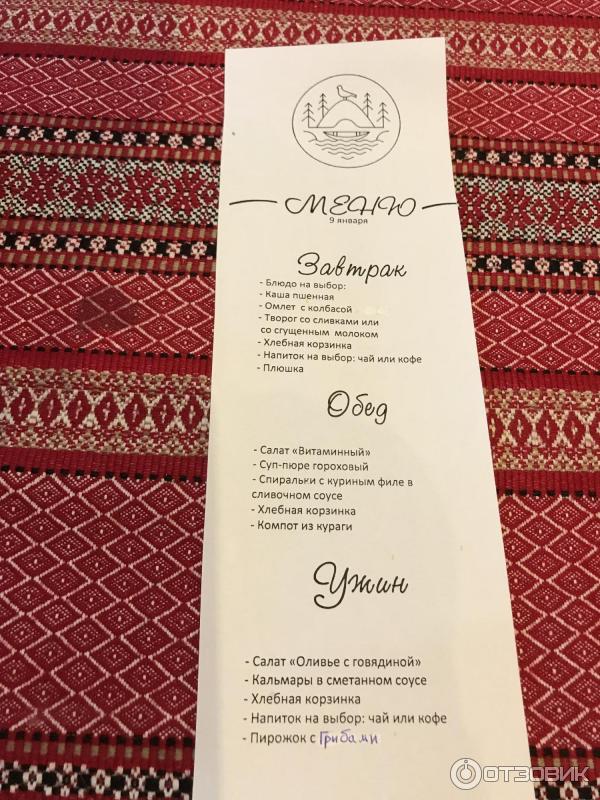 МЕНЮ
9 января
Завтрак
- Блюдо на выбор:
- Каша пшенная
- Омлет с колбасой
- Творог со сливками или
со сгущенным молоком
- Хлебная корзинка
- Напиток на выбор: чай или кофе
- Плюшка
Обед
- Салат «Витаминный»
- Суп-пюре гороховый
- Спиральки с куриным филе в
сливочном соусе
- Хлебная корзинка
- Компот из кураги
Ужин
- Салат «Оливье с говядиной»
- Кальмары в сметанном соусе
- Хлебная корзинка
- Напиток на выбор: чай или кофе
- Пирожок с Грибами
ОТЗОВИК